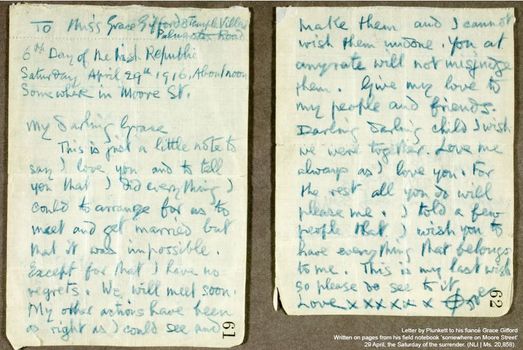 To Miss Grace Gifford 8 Temple Villas
Palmerston Road
6th Day of the Irish Republic
Saturday April 29th 1916. About noon
Somewhere in Moore St.
My Darling Grace
This is just a little note to
say I love you and to tell
you that I did everything I
could to arrange for us to
meet and get married but
that it was impossible.
Except for that I have no
regrets. We will meet soon.
My other actions have been
as right as I could see and
61
make them and I cannot
wish them undone. You at
anyrate will not misjudge
them. Give my love to
my people and friends.
Darling Darling child I wish
we were together. Love me
always as I love you. For
the rest all you do will
please me. I told a few
people that I wish you to
have everything that belongs
to me. This is my last wish
so please do see to it
Love x x x x x x
62
Letter by Plunkett to his fiancé Grace Gifford
Written on pages from his field notebook 'somewhere on Moore Street'
29 April, the Saturday of the surrender. (NLI | Ms. 20,858).